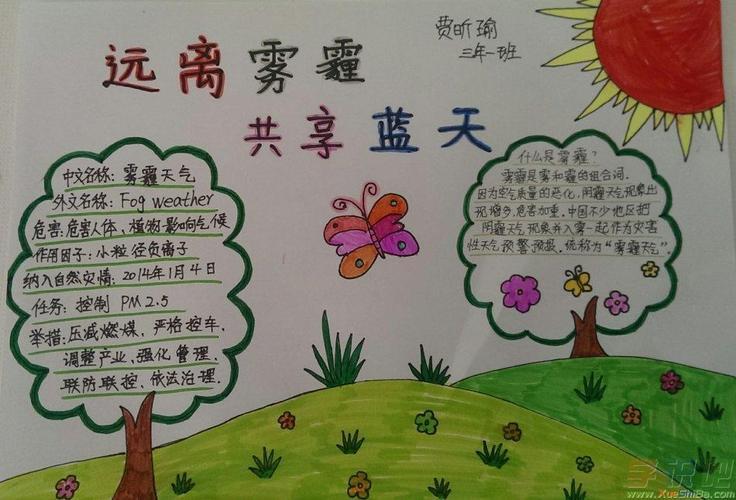 远离雾霾
共享蓝天
贾昕瑜
三年一班
中文名称：雾霾天气
外文名称：Fog weather
危害：危害人体、植物影响气候
作用因子：小粒径负离子
纳入自然灾情：2014年1月4日
任务：控制 PM2.5
举措：压减燃煤，严格控车，
调整产业、强化管理、
联防联控、依法治理。
什么是雾霾？
雾霾是雾和霾的组合词。
因为空气质量的恶化，阴霾天气现象出
现增多，危害加重。中国不少地区把
阴霾天气现象并入雾一起作为灾害
性天气预警预报。统称为“雾霾天气”。
学识吧
www.XueShiBa.com